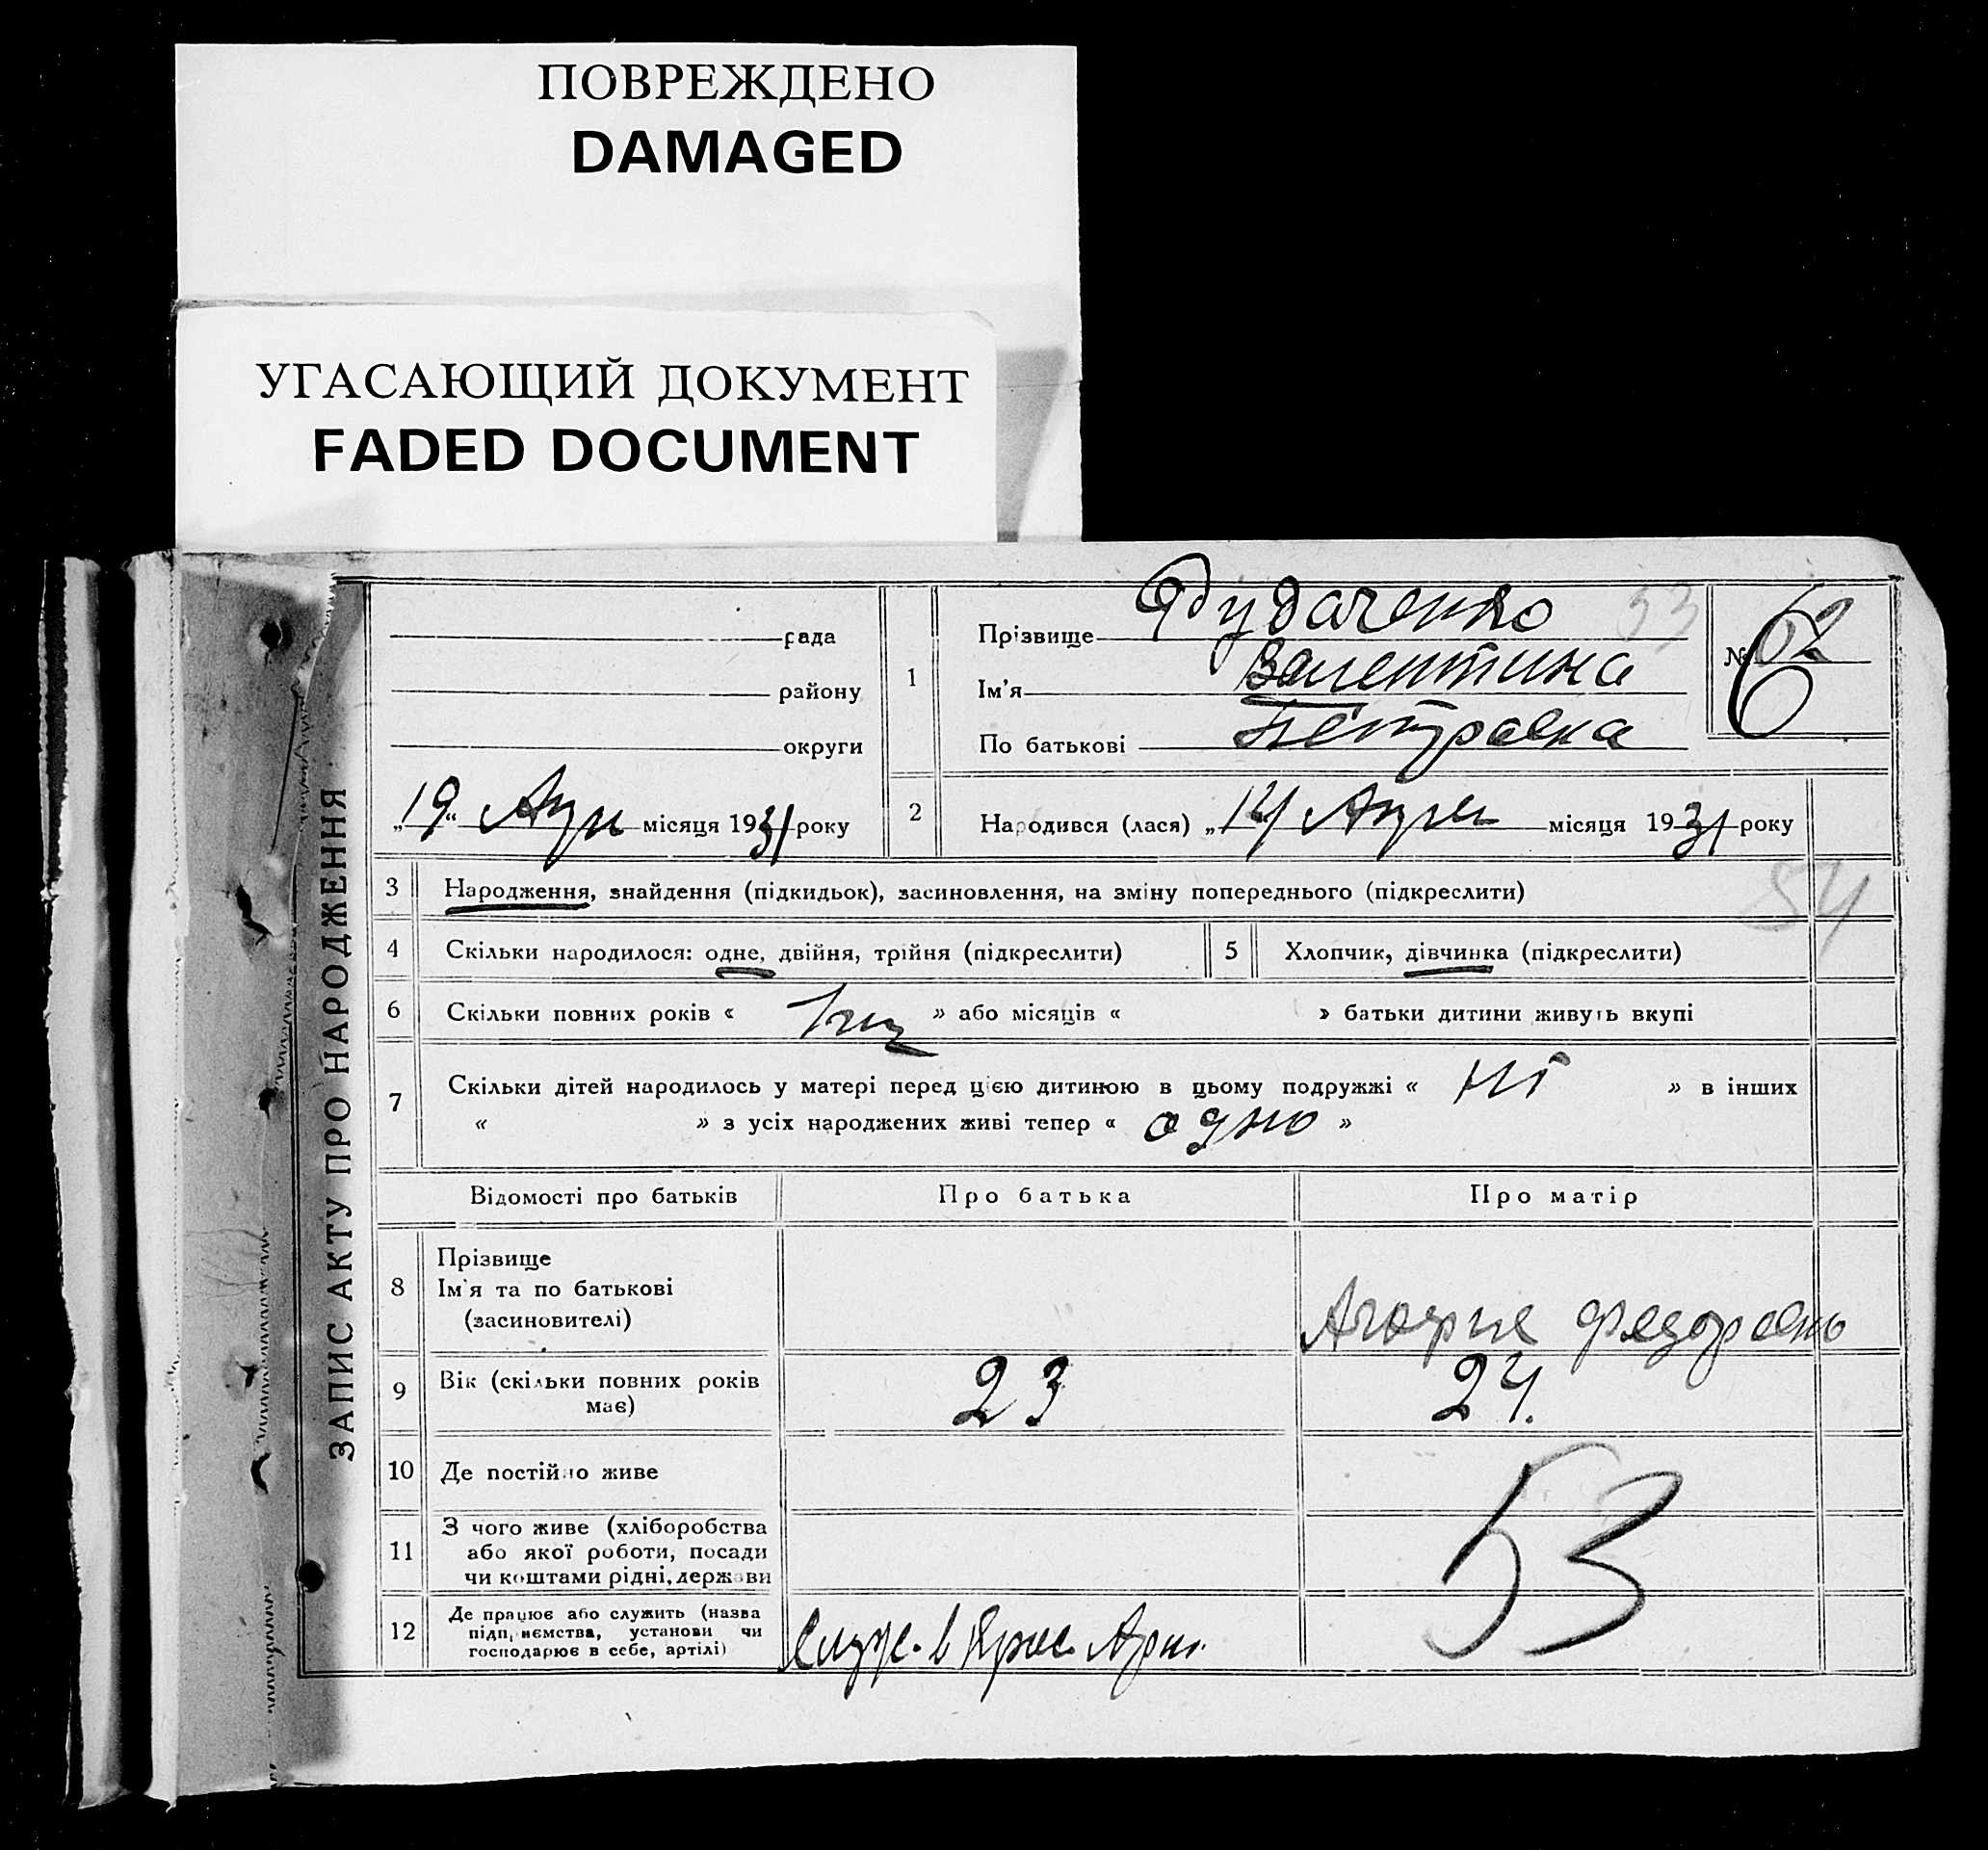 ПОВРЕЖДЕНО
DAMAGED
УГАСАЮЩИЙ ДОКУМЕНТ
FADED DOCUMENT
ЗАПИС АКТУ ПРО НАРОДЖЕННЯ
рада
району
округи
„19“ Апр місяця 1931 року
1
Прізвище 53
Ім'я Валентина
По батькові Петровна
№ 52
6
2 Народився (лася) „14 Апре місяця 1931 року
3 Народження, знайдення (підкидьок), засиновлення, на зміну попереднього (підкреслити)
54
4 Скільки народилося: одне, двійня, трійня (підкреслити)
5 Хлопчик, дівчинка (підкреслити)
6 Скільки повних років « » або місяців « » батьки дитини живуть вкупі
7 Скільки дітей народилось у матері перед цією дитиною в цьому подружжі « ні » в інших
« » з усіх народжених живі тепер « одно »
Відомості про батьків Про батька Про матір
8 Прізвище
Ім'я та по батькові
(засиновителі)
Федоровна
9 Вік (скільки повних років
має)
23 24.
10 Де постійно живе
11 З чого живе (хліборобства
або якої роботи, посади
чи коштами рідні, держави
53
12 Де працює або служить (назва
підприємства, установи чи
господарює в себе, артілі)
Служ. в Крас. Арм.